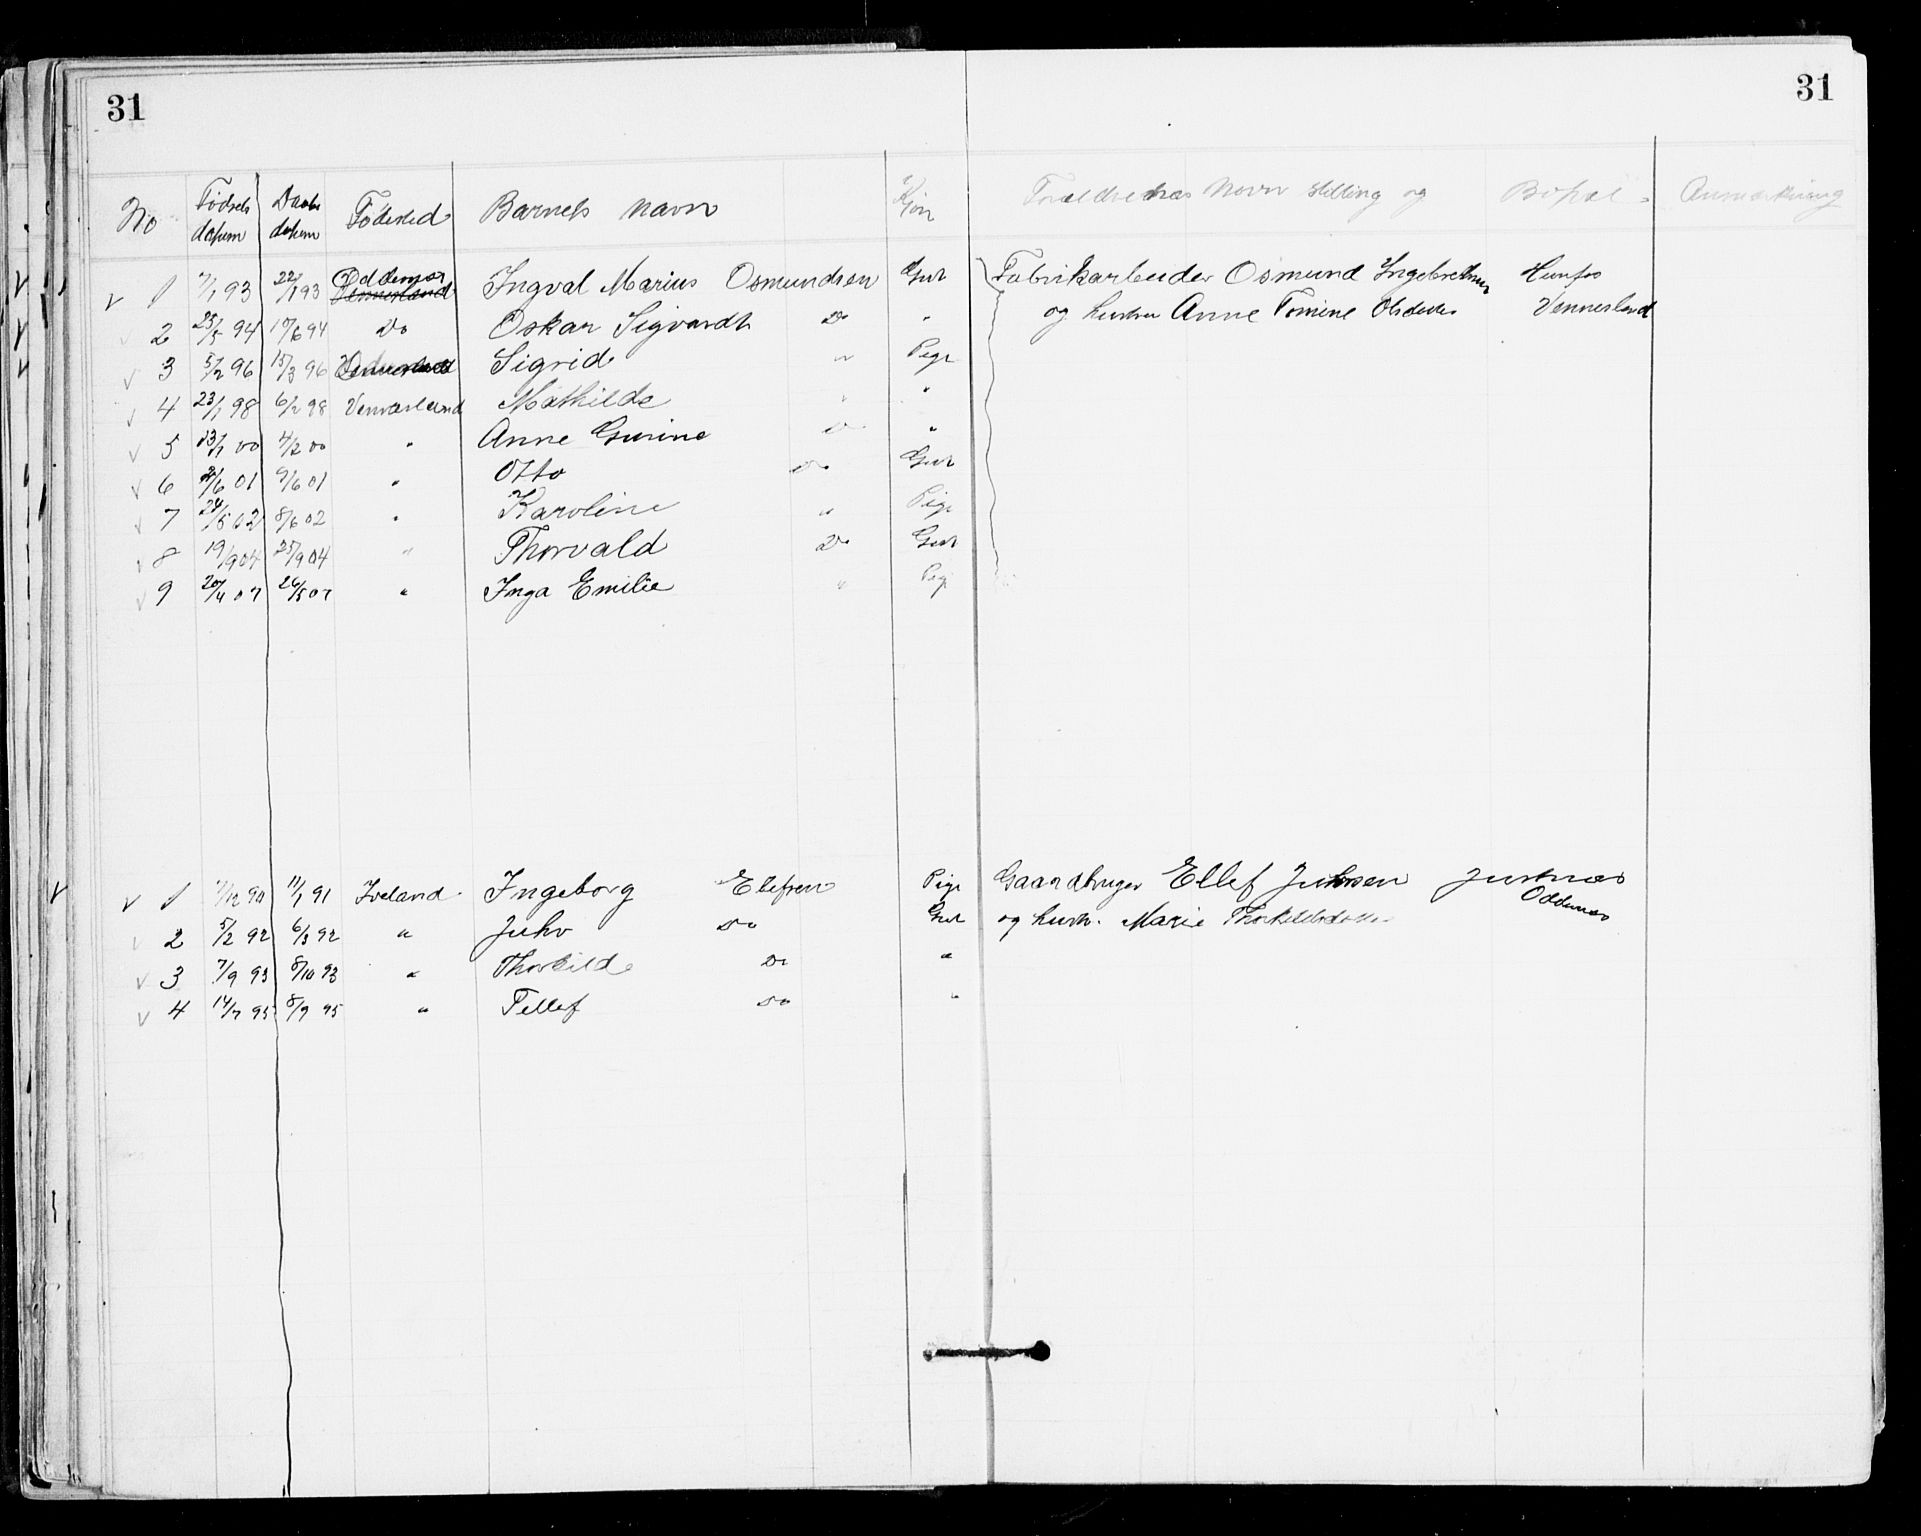 31 31
No Fødsels datum Daabs datum Fødested Barnets Navn Kjøn Forældrenes Navn Stilling og Bopæl Anmærkning
1 7/1 93 22/1 93 Oddernes Vennesland Ingval Marius Osmundsen Gut Fabrikarbeider Osmund Ingebretsen Hunfos
2 25/5 94 17/6 94 Do Oskar Sigvardt Do " og hustru Anne Tomine Olsdatter Vennesland
3 5/2 96 15/3 96 Sigrid " Pige
4 23/1 98 6/2 98 Vennesland Mathilde " "
5 13/1 00 4/2 00 " Anne Gurine Do "
6 /6 01 9/6 01 " Otto Do Gut
7 24/5 02 8/6 02 " Karoline " Pige
8 19/9 04 25/9 04 " Thorvald Do Gut
9 20/4 07 26/5 07 " Inga Emilie " Pige
1 7/12 90 11/1 91 Iveland Ingeborg Ellefsen Pige Gaardbruger Ellef Juhsen Justnes
2 5/2 92 6/3 92 " Juhv Do Gut og hustr. Marie Thorkildsdatter Oddernes
3 7/9 93 8/10 93 " Thorkild Do "
4 14/7 95 8/9 95 " Tellef Do "